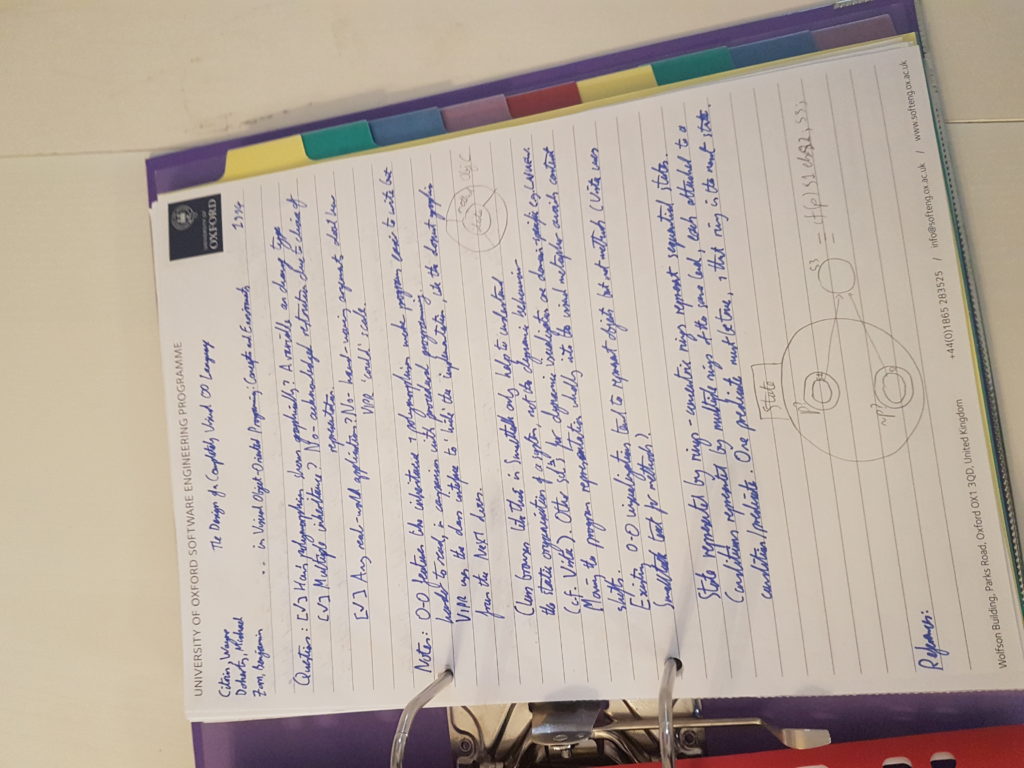 UNIVERSITY OF OXFORD SOFTWARE ENGINEERING PROGRAMME
UNIVERSITY OF
OXFORD
Citrin, Wayne The Design of a Completely Visual OO Language 1994
Doherty, Michael
Zorn, Benjamin .. in Visual Object-Oriented Programming: Concepts and Environments
Questions: [✓] How polymorphism shown graphically? A variable can change type
[✓] Multiple inheritance? No - acknowledged restriction due to choice of
representation.
[✓] Any real-world application? No - hand-waving arguments about how
VIPR 'could' scale.
Notes: O-O features like inheritance & polymorphism make programs easier to write but
harder to read, in comparison with procedural programming.
VIPR uses the class interface to 'hide' the implementation, like the donut graphic
from the NeXT docs.
Class browsers like those in Smalltalk only help to understand
the static organisation of a system, not the dynamic behaviour.
(cf. Vista). Other set is for dynamic visualisation on domain-specific
Moving the program representation to the visual metaphor avoids context
switch.
Existing O-O visualisations tend to represent objects but not methods (Critic uses
Smalltalk text for methods)
State represented by rings - concentric rings represent sequential states.
Conditionals represented by multiple rings at the same level, each attached to a
condition/predicate. One predicate must be true, & that ring is the next state.
State
P?
~P?
S3
if(p) S1 else S2; S3;
References:
Wolfson Building, Parks Road, Oxford OX1 3QD, United Kingdom +44(0)1865 283525 / info@softeng.ox.ac.uk / www.softeng.ox.ac.uk